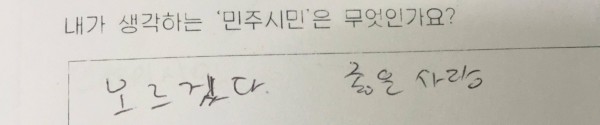 내가 생각하는 '민주시민'은 무엇인가요?
모르겠다. 좋은 사람